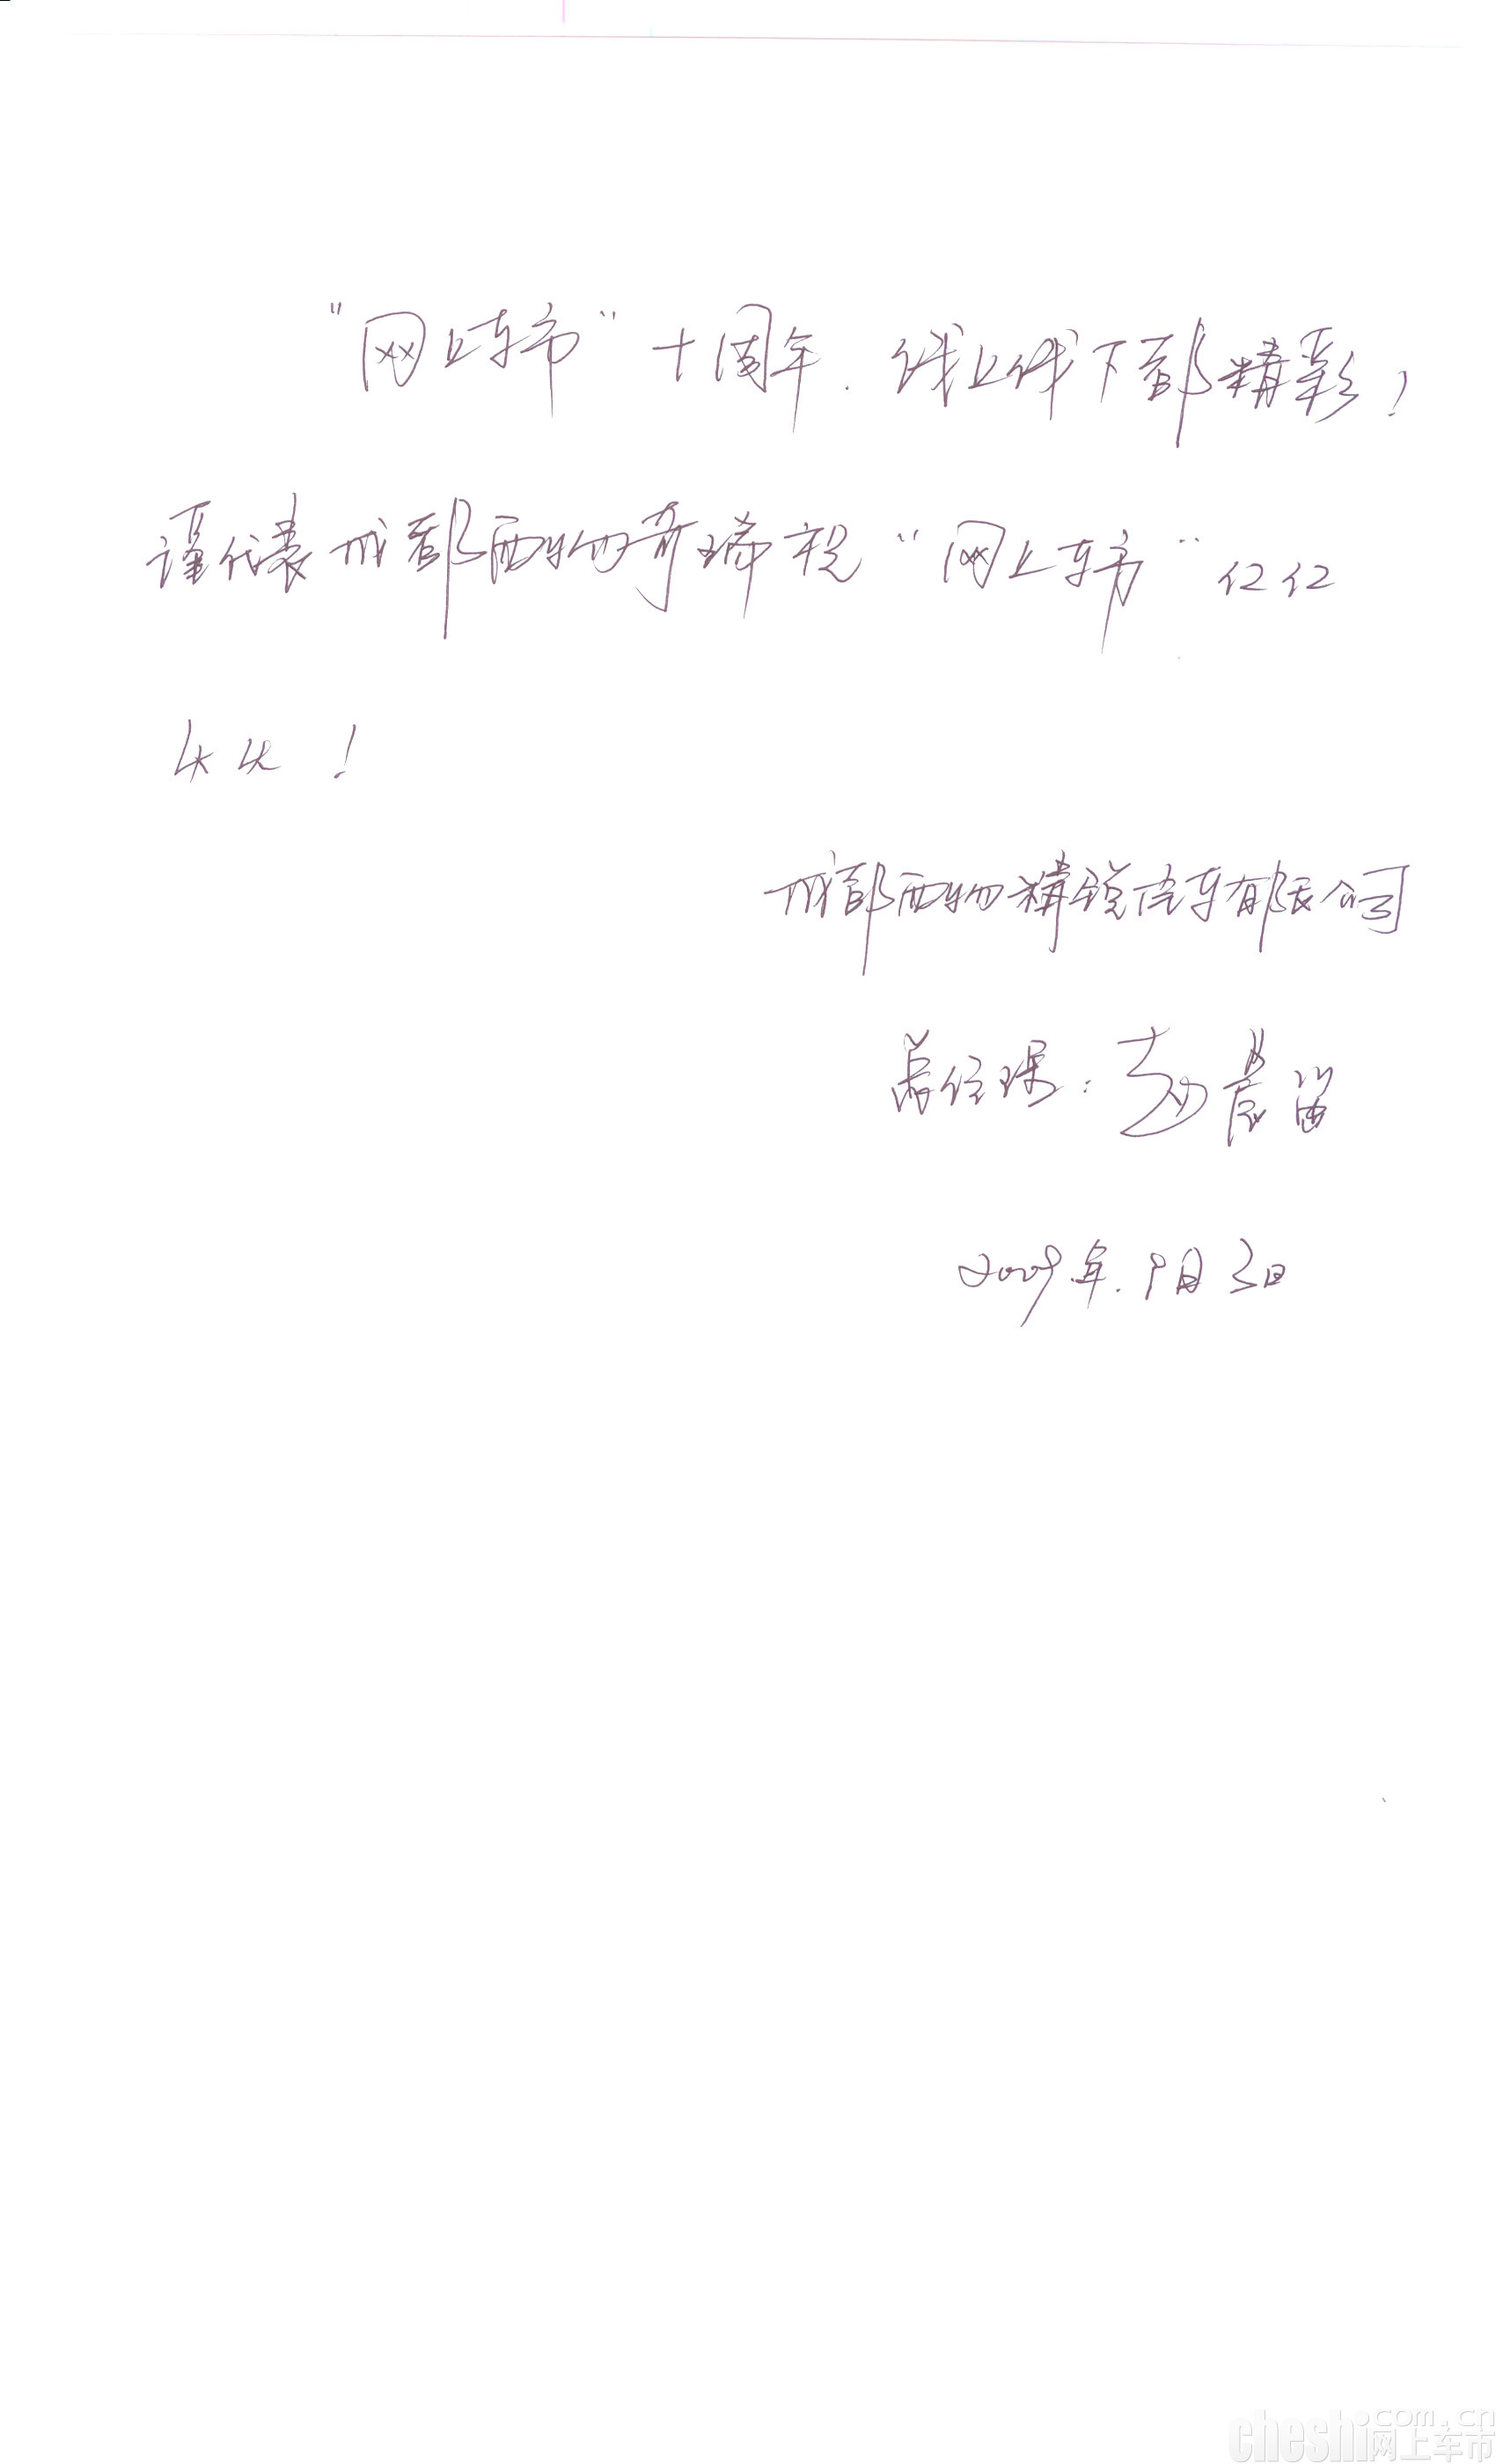 “网上车市”十周年.线上线下都精彩！
谨代表成都西物奇瑞祝“网上车市”红红
火火！
成都西物精锐汽车有限公司
总经理：
2009年.9月3日
cheshi.com.cn
网上车市